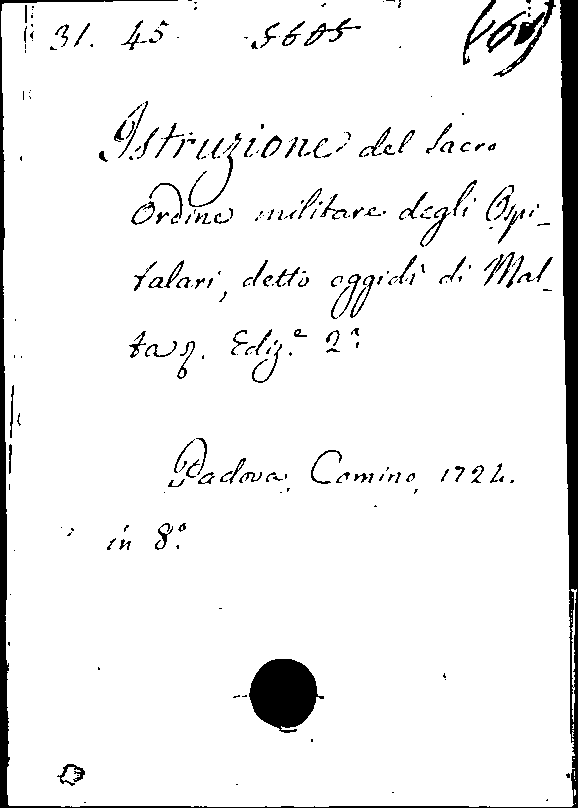 31. 45 5605
Istruzione del Sacro
Ordine militare degli Ospi-
talari, detto oggidì di Mal-
ta. Ediz.e 2a
Padova, Comino, 1724.
in 8.o